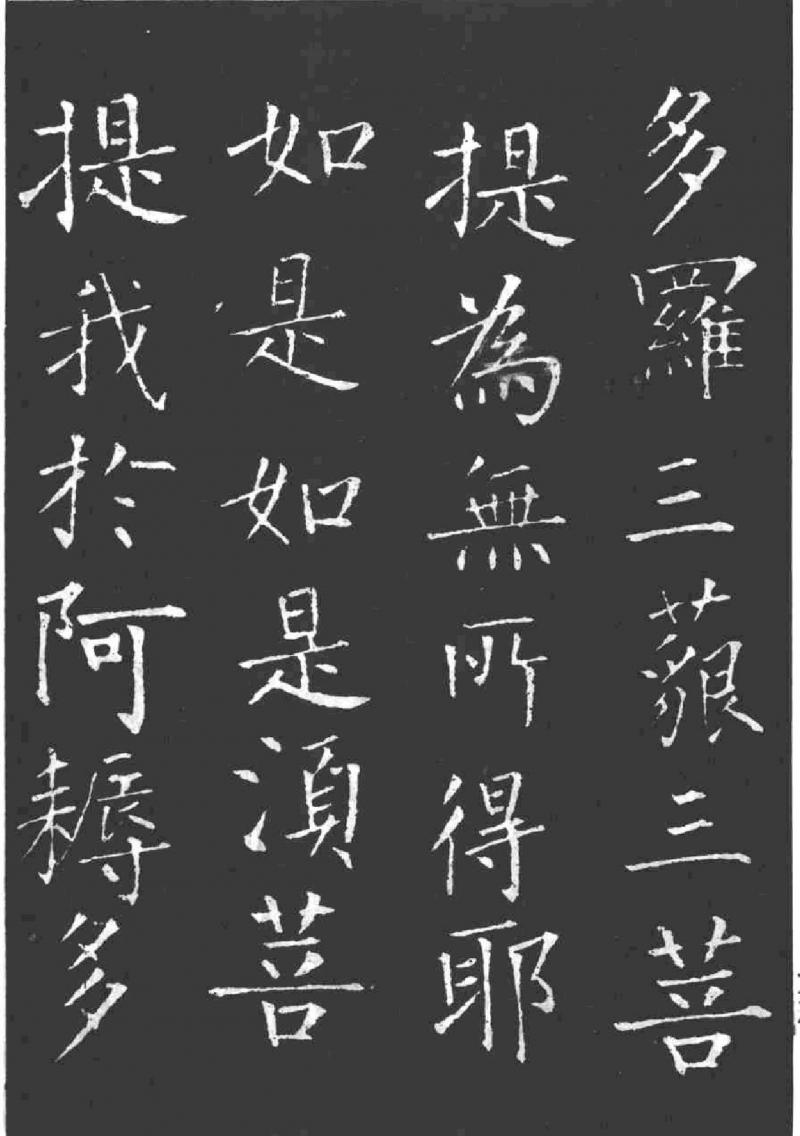 多羅三藐三菩
提為無所得耶
如是如是湏菩
提我於阿耨多